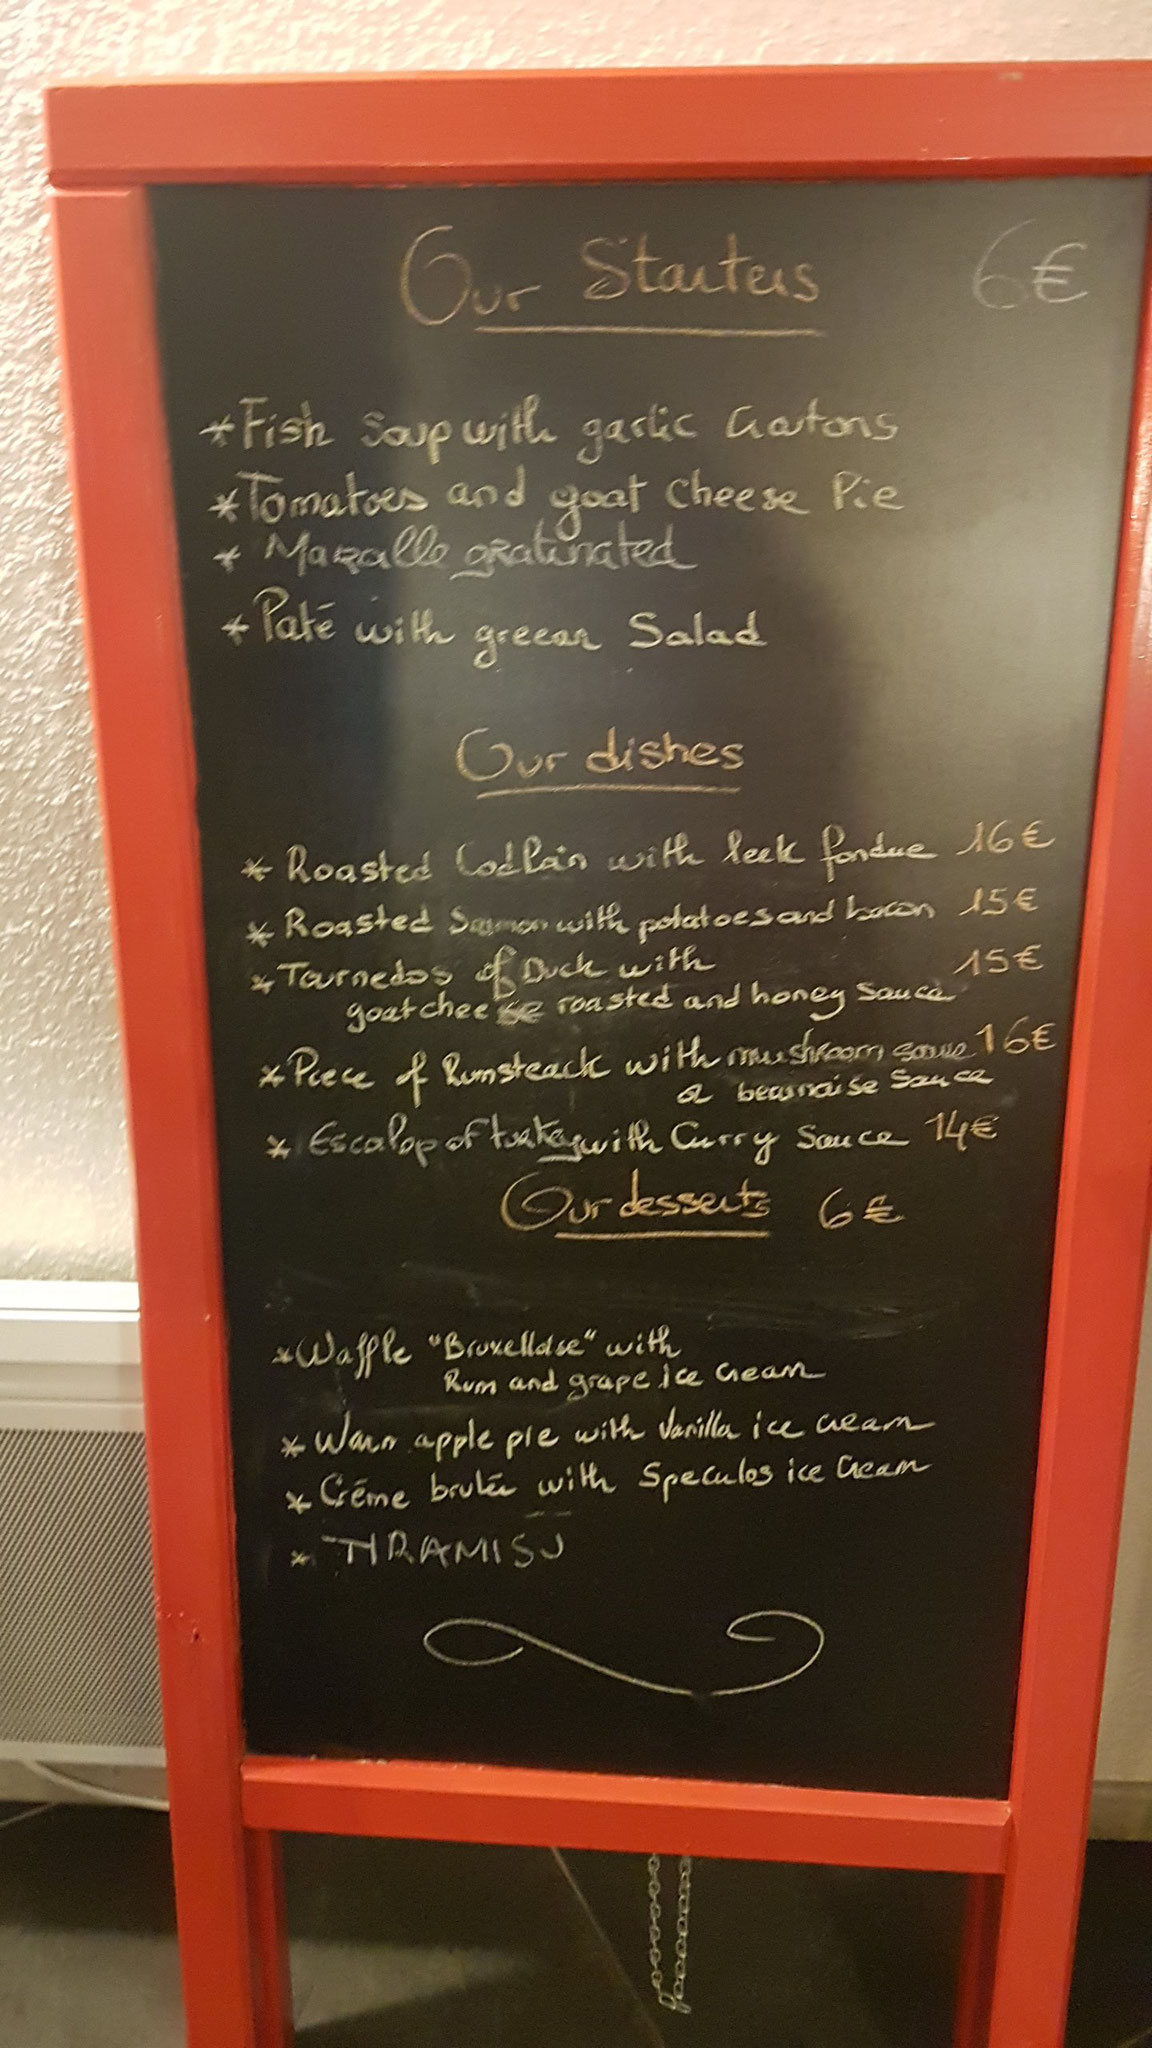 Our Starters 6€
*Fish Soup with garlic Croutons
*Tomatoes and goat cheese Pie
* gratinated
*Paté with greean Salad
Our dishes
* Roasted Cod with leek fondue 16€
* Roasted Saumon with potatoes and bacon 15€
* Tournedos of Duck with 15€
goat cheese roasted and honey sauce
* Piece of Rumsteack with mushroom sauce 16€
a bearnaise sauce
* Escalop of turkey with Curry Sauce 14€
Our desserts 6€
*Waffle "Bruxelloise" with
Rum and grape ice cream
* Warn apple pie with Vanilla ice cream
* Créme brulée with Speculos ice cream
* TIRAMISU